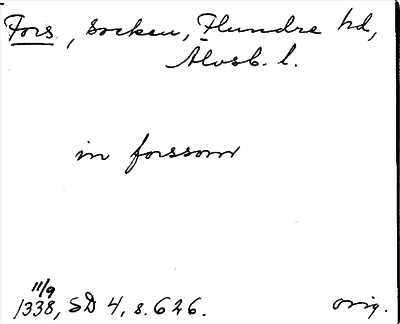 Fors, socken, Flundre hd,
Älvsb. l.
in forssom
11/9
1338, SD 4, s. 626. orig.